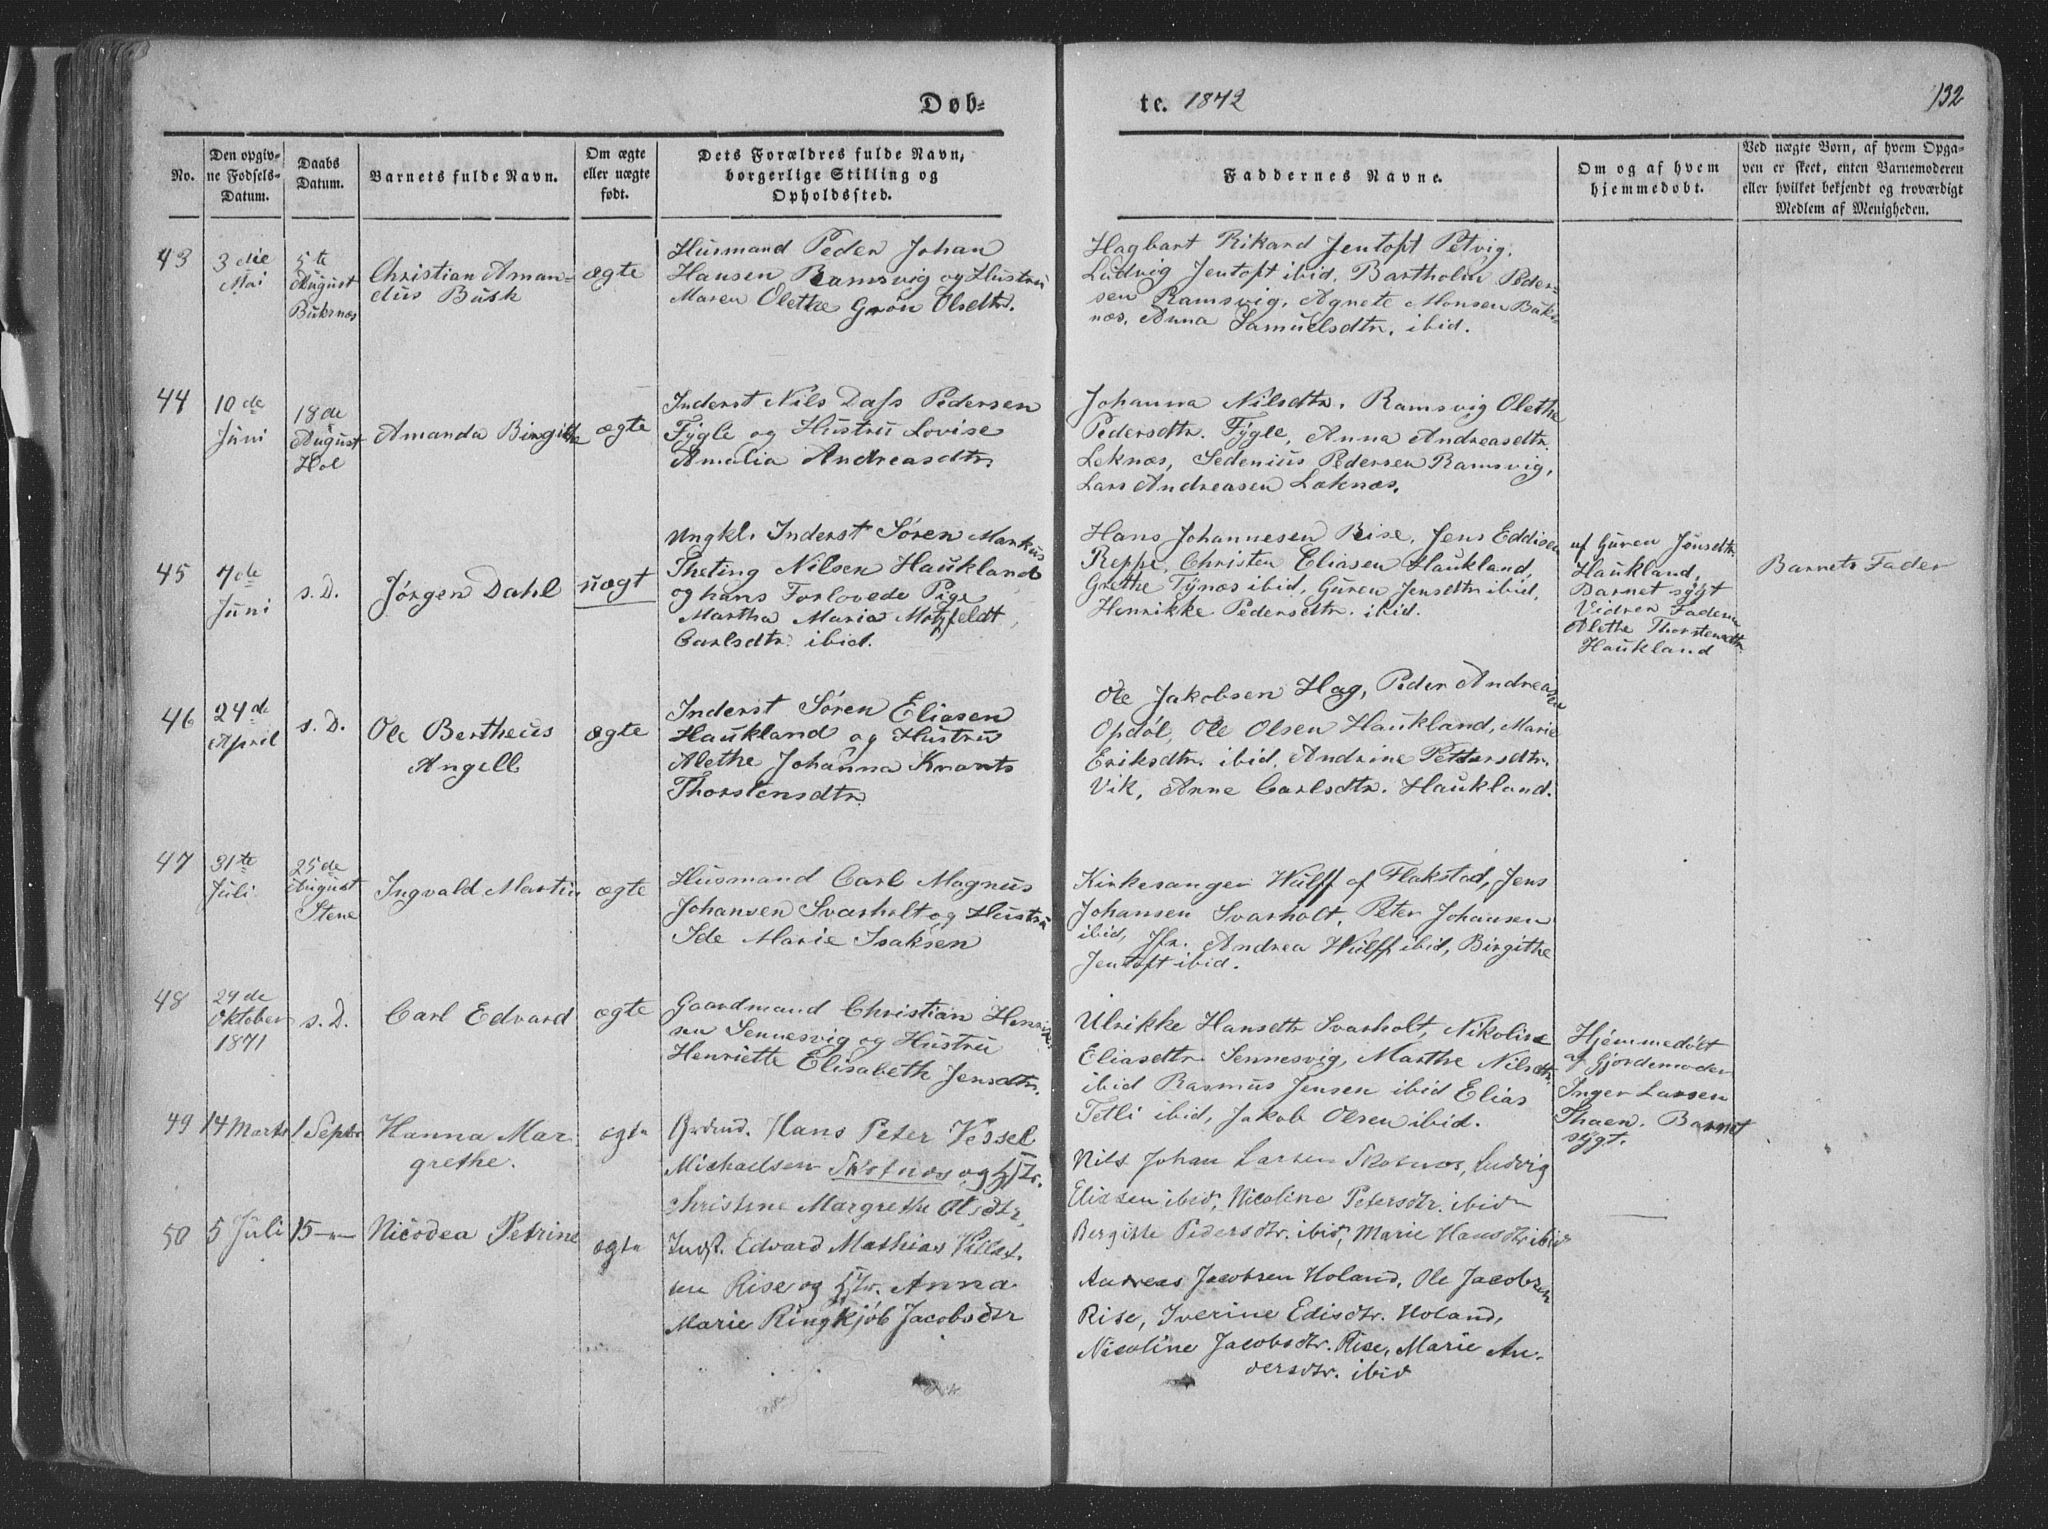 Døb-
te. 1842
132
No.
Den opgiv-
ne Fødsels-
Datum.
Daabs
Datum.
Barnets fulde Navn.
Om ægte
eller uægte
født.
Dets Forældres fulde Navn,
borgerlige Stilling og
Opholdssted.
Faddernes Navne.
Om og af hvem
hjemmedøbt.
Ved uægte Børn, af hvem Opga-
ven er skeet, enten Barnemoderen
eller hvilket bekjendt og troværdigt
Medlem af Menigheden.
43
3die
Mai
5te
August
Buknæs
Christian Aman-
dus Busk
ægte
Husmand Peder Johan
Hansen Ramsvig og Hustru
Maren Olethe Grön Olsdtr.
Hagbart Rikard Jentoft Petvig.
Ludvig Jentoft ibid. Bartholm Peder-
sen Ramsvig, Agnete Monsen Buk-
næs, Anna Samuelsdtr. ibid.
44
10de
Juni
18de
August
Hol
Amanda Birgitte
ægte
Inderst Nils Dass Pedersen
Fÿgle og Hustru Lovise
Amalia Andreasdtr
Johanna Nilsdtr. Ramsvig Olethe
Pedersdtr. Fÿgle, Anna Andreasdtr.
Leknæs, Sedenius Pedersen Ramsvig,
Lars Andreasen Leknæs.
45
7de
Juni
s. D.
Jørgen Dahl
uægt
Ungkl. Inderst Søren Markus
Theting Nilsen Haukland
og hans Forlovede Pige
Martha Maria Motzfeldt
Carlsdtr. ibid.
Hans Johannesen Reise, Jens Eddisen
Reppe, Christen Eliasen Haukland,
Grethe Tÿnæs ibid, Guren Jensdtr ibid,
Henrikke Pedersdtr. ibid.
af Guren Jensdtr
Haukland,
Barnet sÿgt
Vidner Faderen
Alethe Thorstensdtr
Haukland
Barnets Fader
46
24de
April
s. D.
Ole Bertheus
Angell
ægte
Inderst Søren Eliasen
Haukland og Hustru
Alethe Johanna Knants
Thorstensdtr
Ole Jakobsen Hag, Peder Andreasen
Opdøl, Ole Olsen Haukland, Marie
Eriksdtr. ibid, Andrine Pettersdtr.
Vik, Anne Carlsdtr. Haukland.
47
31te
Juli
25de
August
Stene
Ingvald Martin
ægte
Husmand Carl Magnus
Johansen Svarholt og Hustru
Ide Marie Isaksen
Kirkesanger Wulff af Flakstad, Jens
Johansen Svarholt, Peter Johansen
ibid, Jfr. Andrea Wulff ibid, Birgithe
Jentoft ibid.
48
29de
Oktober
1871
s. D.
Carl Edvard
ægte
Gaardmand Christian Henrik-
sen Sennesvig og Hustru
Henriette Elisabeth Jensdtr.
Ulrikke Hansdtr Svarholt, Nikoline
Eliasdtr. Sennesvig, Marthe Nilsdtr.
ibid Rasmus Jensen ibid Elias
Tetli ibid, Jakob Olsen ibid.
Hjemmedøbt
af Gjordemoder
Inger Larsen
Thaen. Barnet
sÿgt.
49
14 Marts
1 Septbr
Hanna Mar
grethe.
ægte
Grdmd. Hans Peter Vessel
Michaelsen Skotnæs og Hstr.
Christine Margrethe Olsdtr,
Nils Johan Larsen Skotnæs, Ludvig
Eliesen ibid, Nicoline Petersdtr. ibid
Bergitte Pedersdtr. ibid, Marie Hansdtr ibid
50
5 Juli
15 –"–
Nicodea Petrine
ægte
Indst. Edvard Mathias
Rise og Hstr. Anna
Marie Ringkjöb Jacobsdtr
Andreas Jacobsen Holand, Ole Jacobsen
Rise, Iverine Edisdtr. Holand,
Nicoline Jacobsdtr. Rise, Marie An-
dersdtr. ibid